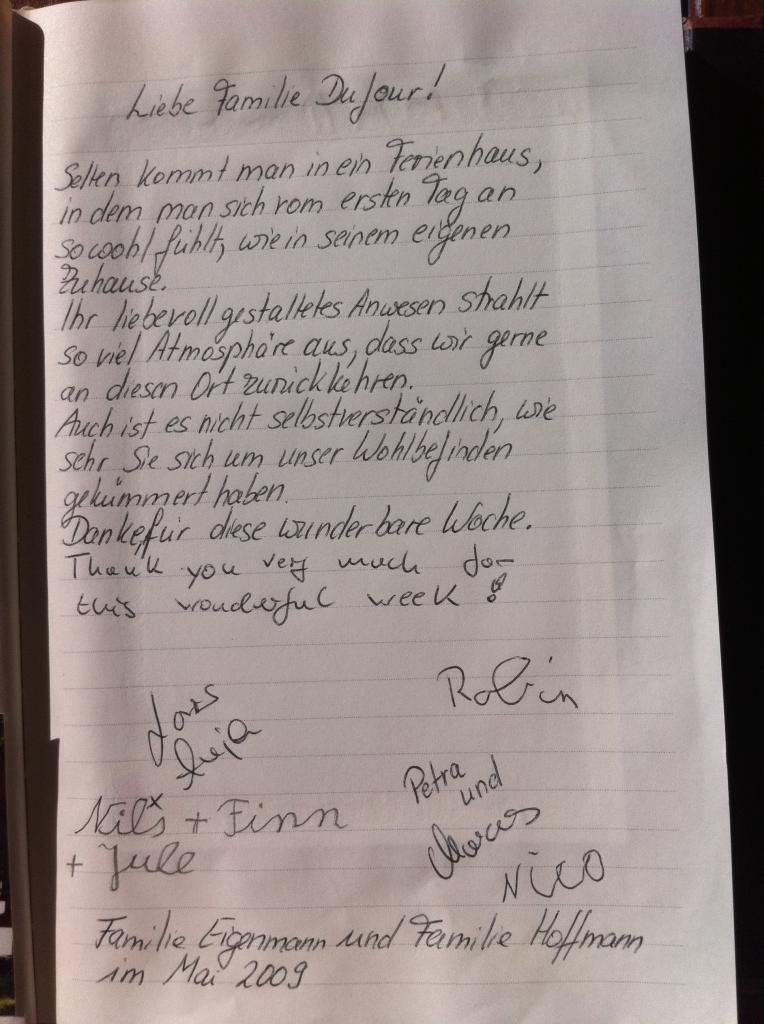 Liebe Familie DuJour!
Selten kommt man in ein Ferienhaus,
in dem man sich vom ersten Tag an
so wohl fühlt, wie in seinem eigenen
Zuhause.
Ihr liebevoll gestaltetes Anwesen strahlt
so viel Atmosphäre aus, dass wir gerne
an diesen Ort zurückkehren.
Auch ist es nicht selbstverständlich, wie
sehr Sie sich um unser Wohlbefinden
gekümmert haben.
Danke, für diese wunderbare Woche.
Thank you very much for
this wonderful week!
Robin
Lars
Petra
und
Marcus
Nils + Finn
+ Jule
Nico
Familie Eigenmann und Familie Hoffmann
im Mai 2009